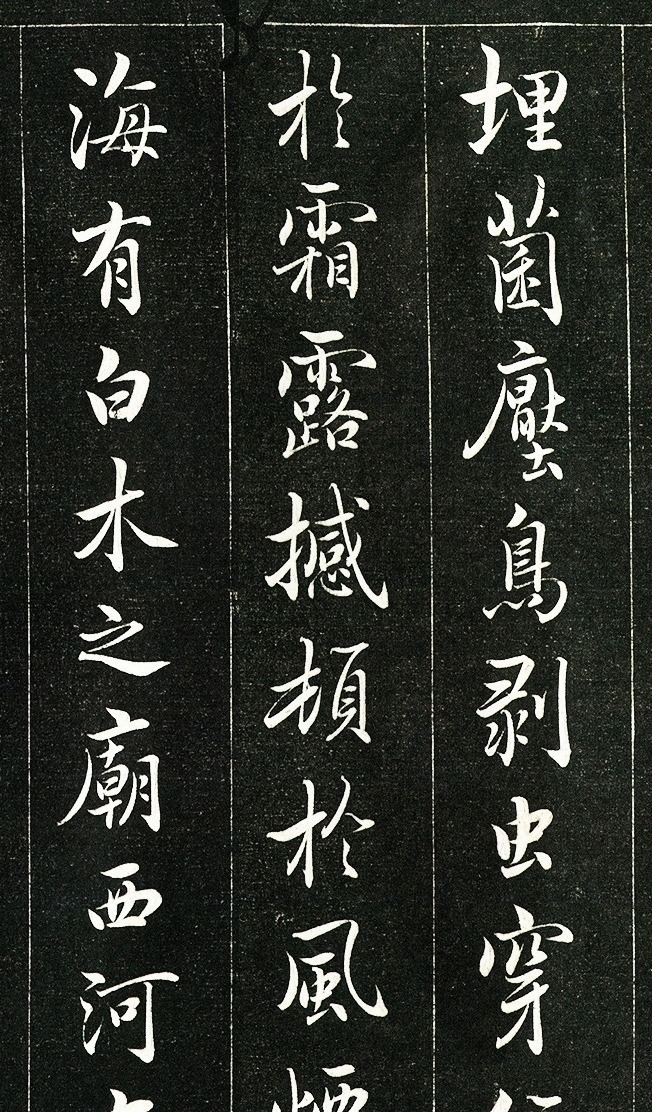 埋菌壓鳥剥虫穿
於霜露撼頓於風
海有白木之廟西河